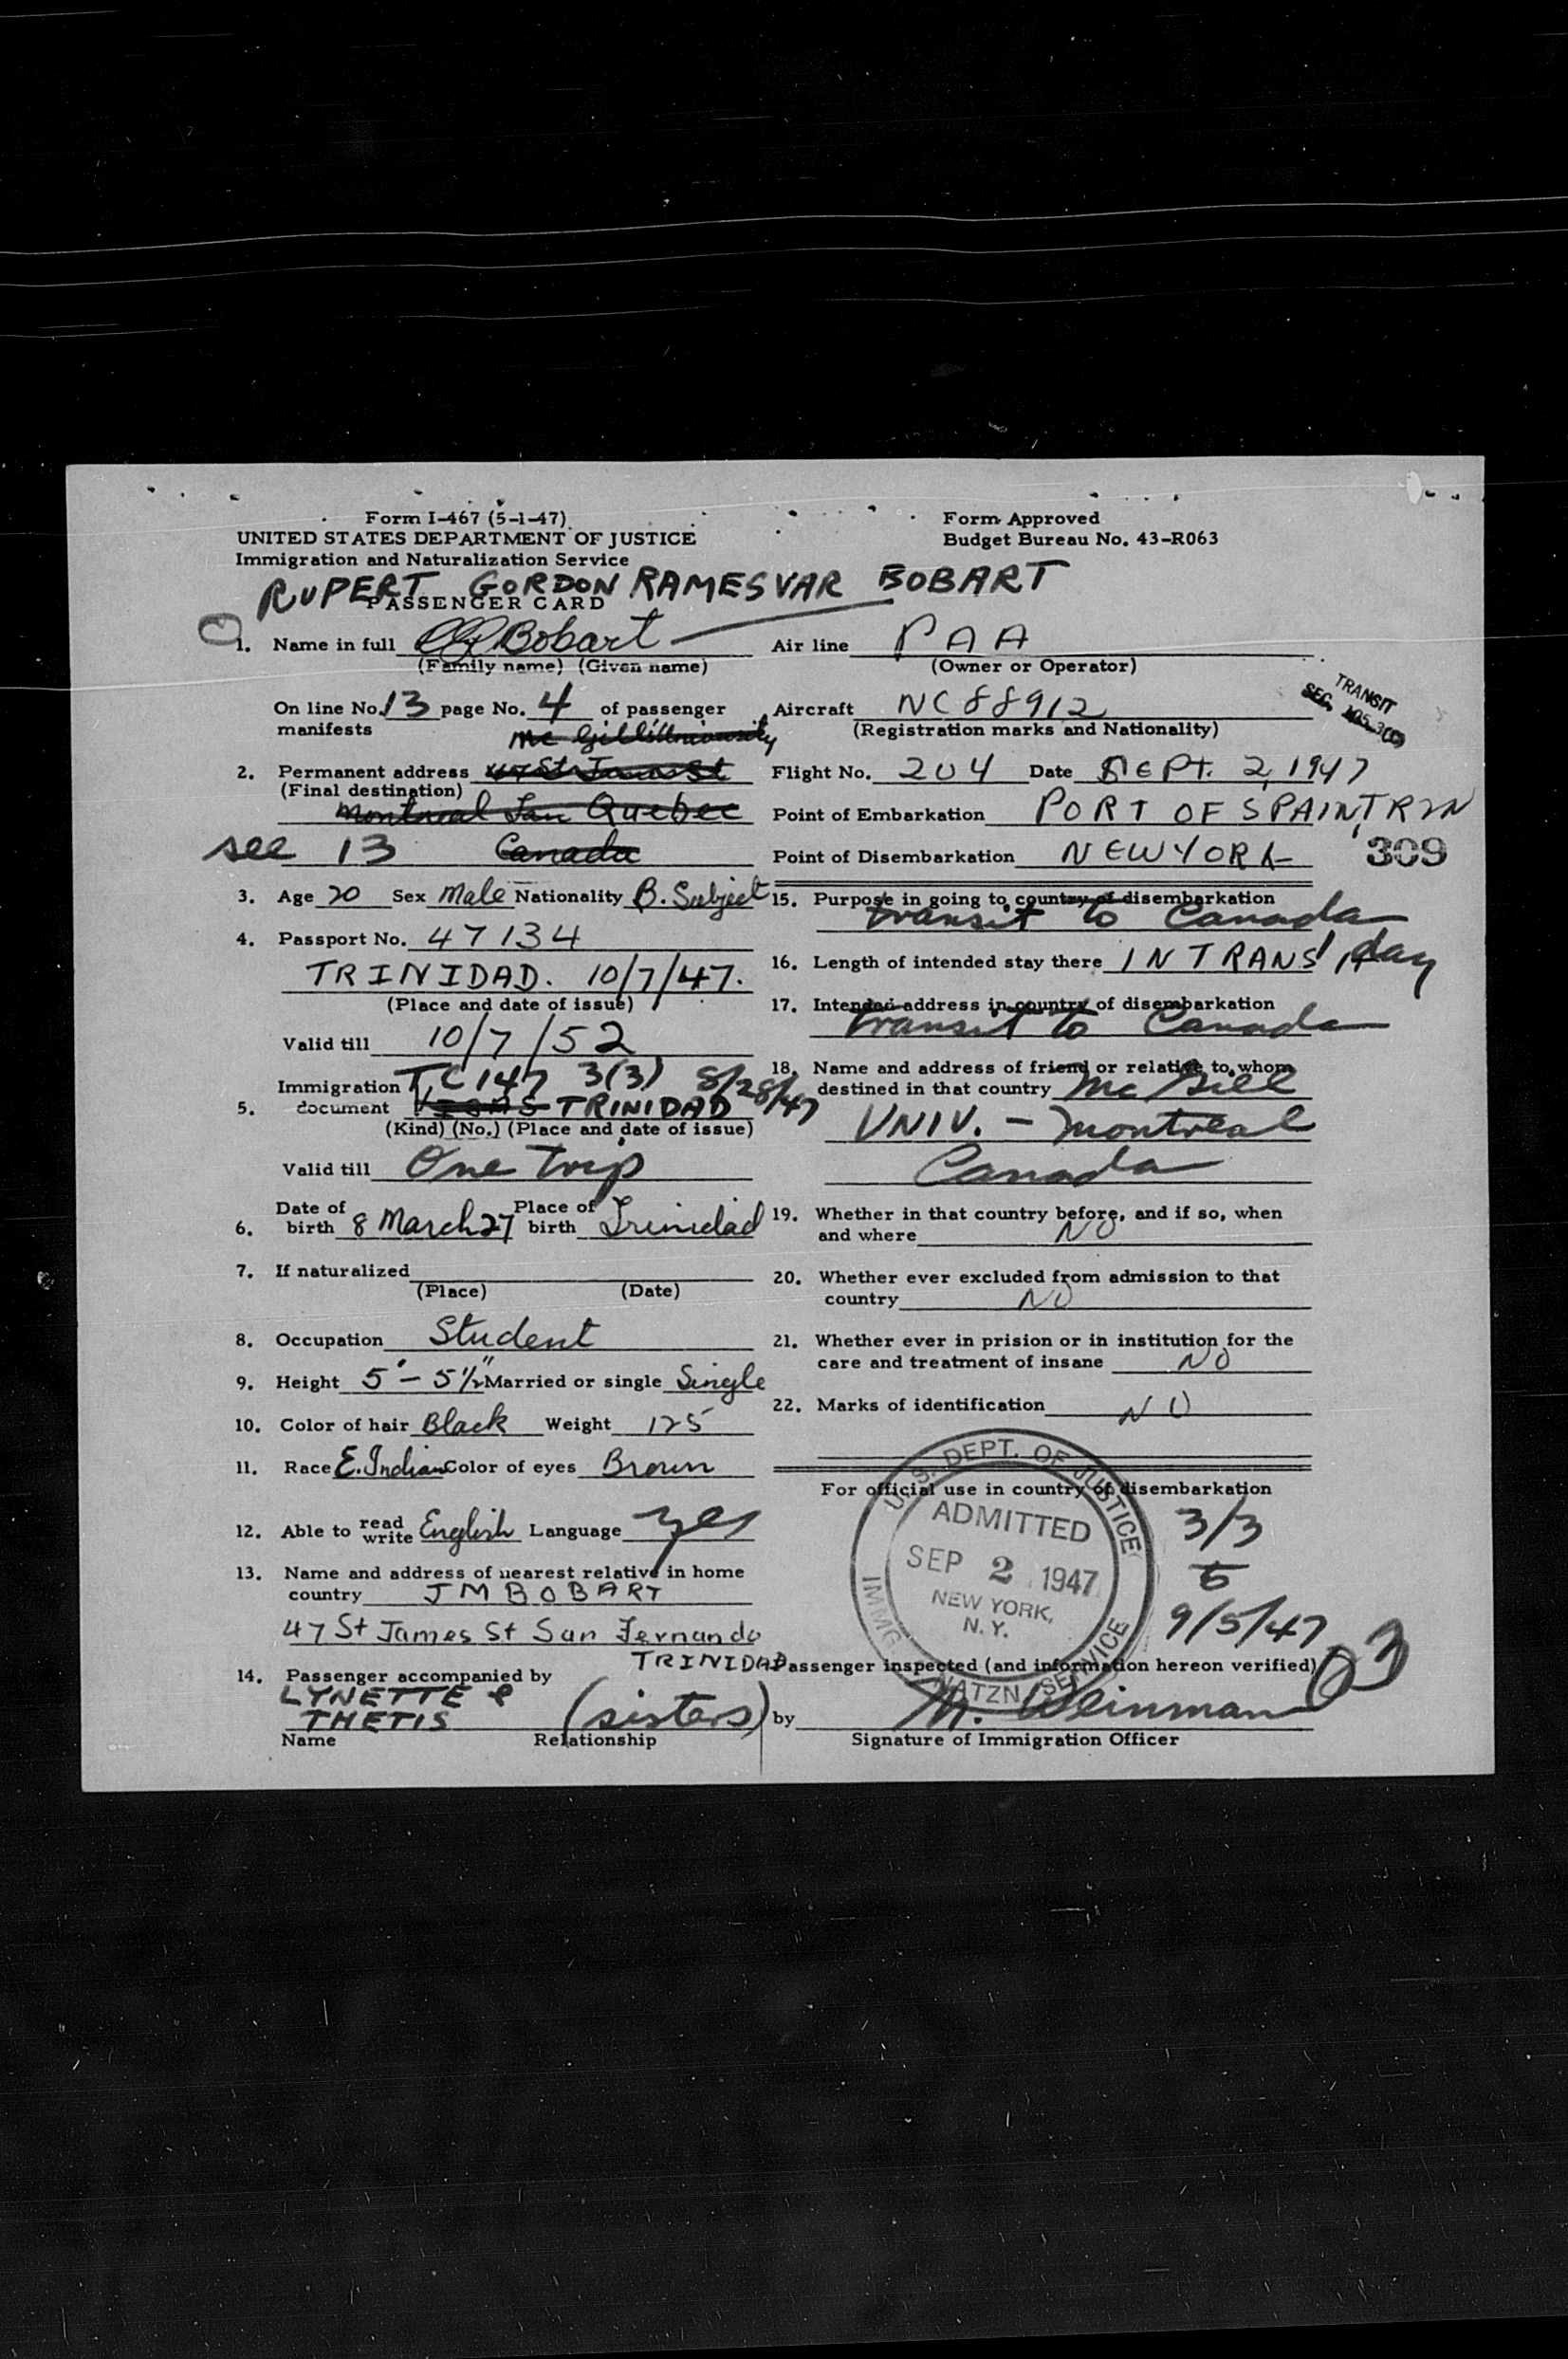 Form I-467 (5-1-47)
UNITED STATES DEPARTMENT OF JUSTICE
Immigration and Naturalization Service
Form Approved
Budget Bureau No. 43-R063
RUPERT GORDON RAMESVAR BOBART
PASSENGER CARD
1. Name in full Bobart
(Family name) (Given name)
On line No. 13 page No. 4 of passenger
manifests
Mc Gill University
2. Permanent address 47 St James St
(Final destination)
Montreal San Quebec
see 13 Canada
3. Age 20 Sex Male Nationality B. Subject
4. Passport No. 47134
TRINIDAD. 10/7/47.
(Place and date of issue)
Valid till 10/7/52
Immigration T.C 147 3(3) 8/28/47
5. document TRINIDAD
(Kind) (No.) (Place and date of issue)
Valid till One trip
6. Date of birth 8 March 27 Place of birth Trinidad
7. If naturalized
(Place) (Date)
8. Occupation Student
9. Height 5' - 5½" Married or single Single
10. Color of hair Black Weight 125
11. Race E. Indian Color of eyes Brown
12. Able to read write English Language yes
13. Name and address of nearest relative in home
country J M BOBART
47 St James St San Fernando
TRINIDAD
14. Passenger accompanied by
LYNETTE &
THETIS (sisters)
Name Relationship
Air line PAA
(Owner or Operator)
Aircraft NC88912
(Registration marks and Nationality)
TRANSIT
SEC. 105.3(C)
Flight No. 204 Date SEPT. 2, 1947
Point of Embarkation PORT OF SPAIN, TRIN
Point of Disembarkation NEW YORK
309
15. Purpose in going to country of disembarkation
transit to Canada
16. Length of intended stay there IN TRANS 1 day
17. Intended address in country of disembarkation
transit to Canada
18. Name and address of friend or relative to whom
destined in that country Mc Gill
UNIV. - Montreal
Canada
19. Whether in that country before, and if so, when
and where NO
20. Whether ever excluded from admission to that
country NO
21. Whether ever in prision or in institution for the
care and treatment of insane NO
22. Marks of identification NO
For official use in country of disembarkation
U. S. DEPT. OF JUSTICE
ADMITTED
SEP 2 1947
NEW YORK,
N. Y.
IMMG NATZN. SERVICE
3/3
9/5/47
Passenger inspected (and information hereon verified)
03
by M. Weinman
Signature of Immigration Officer